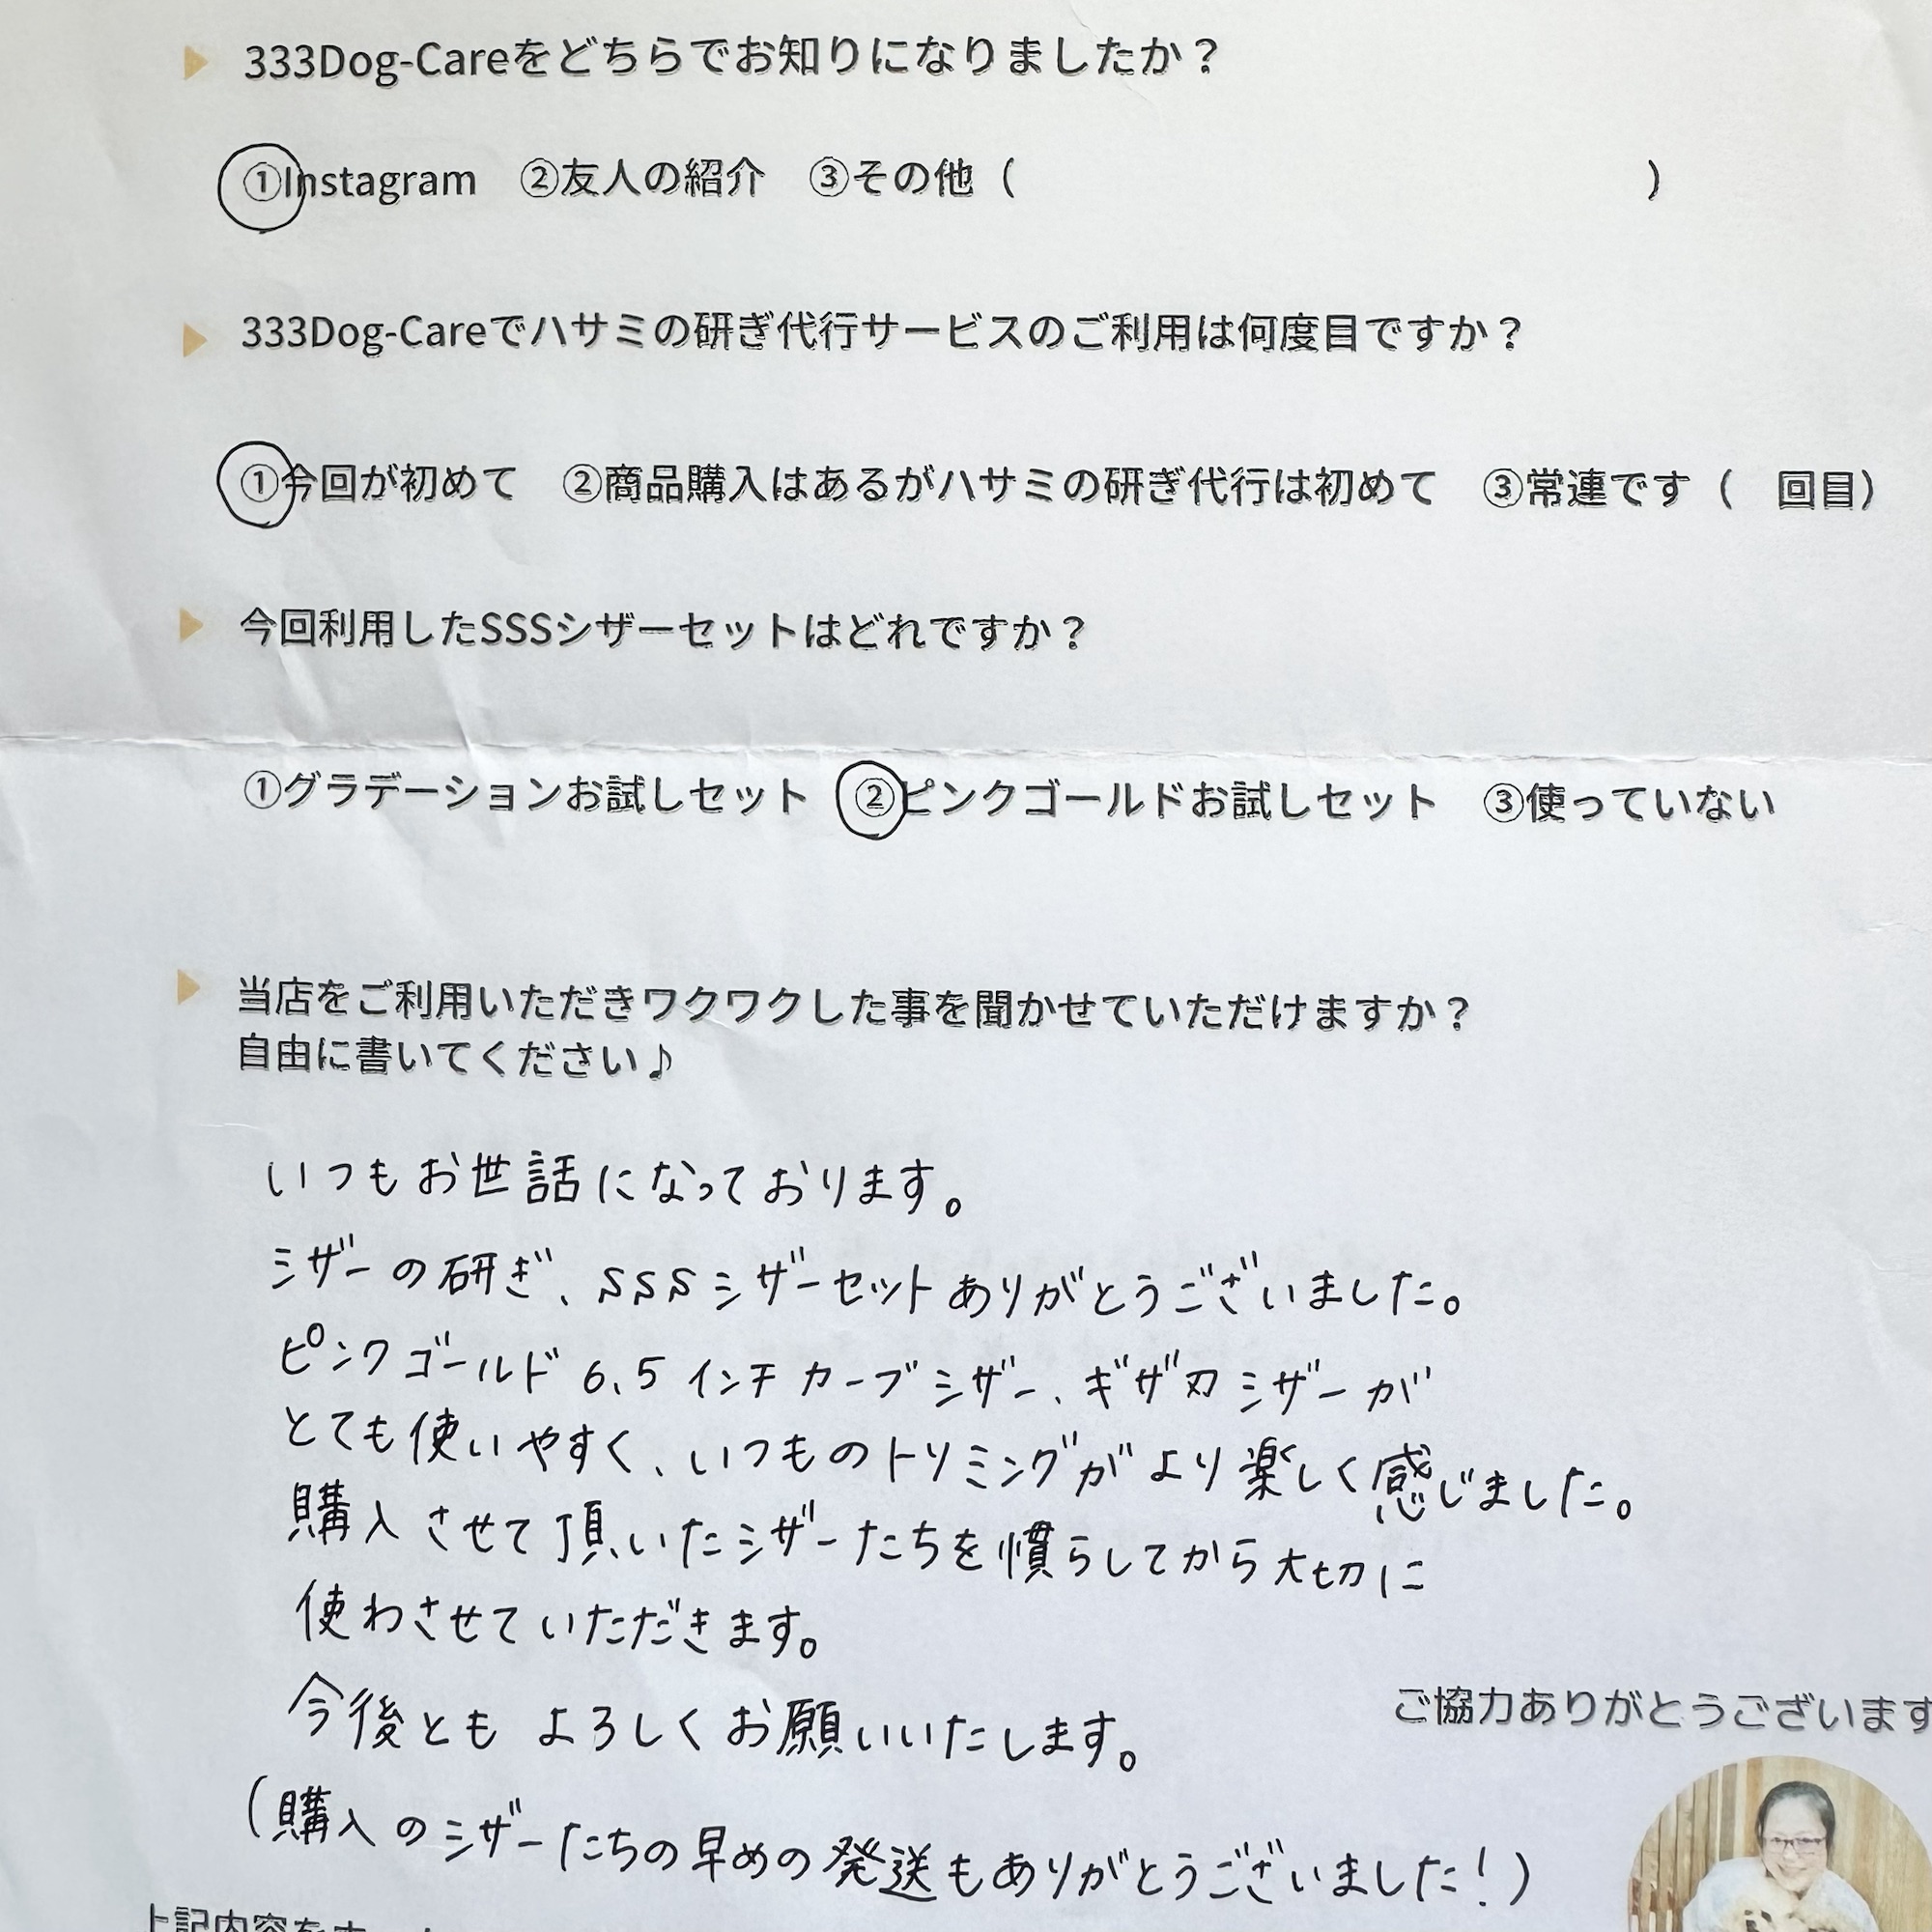 333Dog-Careをどちらでお知りになりましたか？
①Instagram　②友人の紹介　③その他（　　　　　　　　　　　　　　　）
333Dog-Careでハサミの研ぎ代行サービスのご利用は何度目ですか？
①今回が初めて　②商品購入はあるがハサミの研ぎ代行は初めて　③常連です（　回目）
今回利用したSSSシザーセットはどれですか？
①グラデーションお試しセット　②ピンクゴールドお試しセット　③使っていない
当店をご利用いただきワクワクした事を聞かせていただけますか？
自由に書いてください♪
いつもお世話になっております。
シザーの研ぎ、SSSシザーセットありがとうございました。
ピンクゴールド6.5インチカーブシザー、ギザ刃シザーが
とても使いやすく、いつものトリミングがより楽しく感じました。
購入させて頂いたシザーたちを慣らしてから大切に
使わさせていただきます。
今後ともよろしくお願いいたします。
ご協力ありがとうございます
(購入のシザーたちの早めの発送もありがとうございました!)
上記内容を